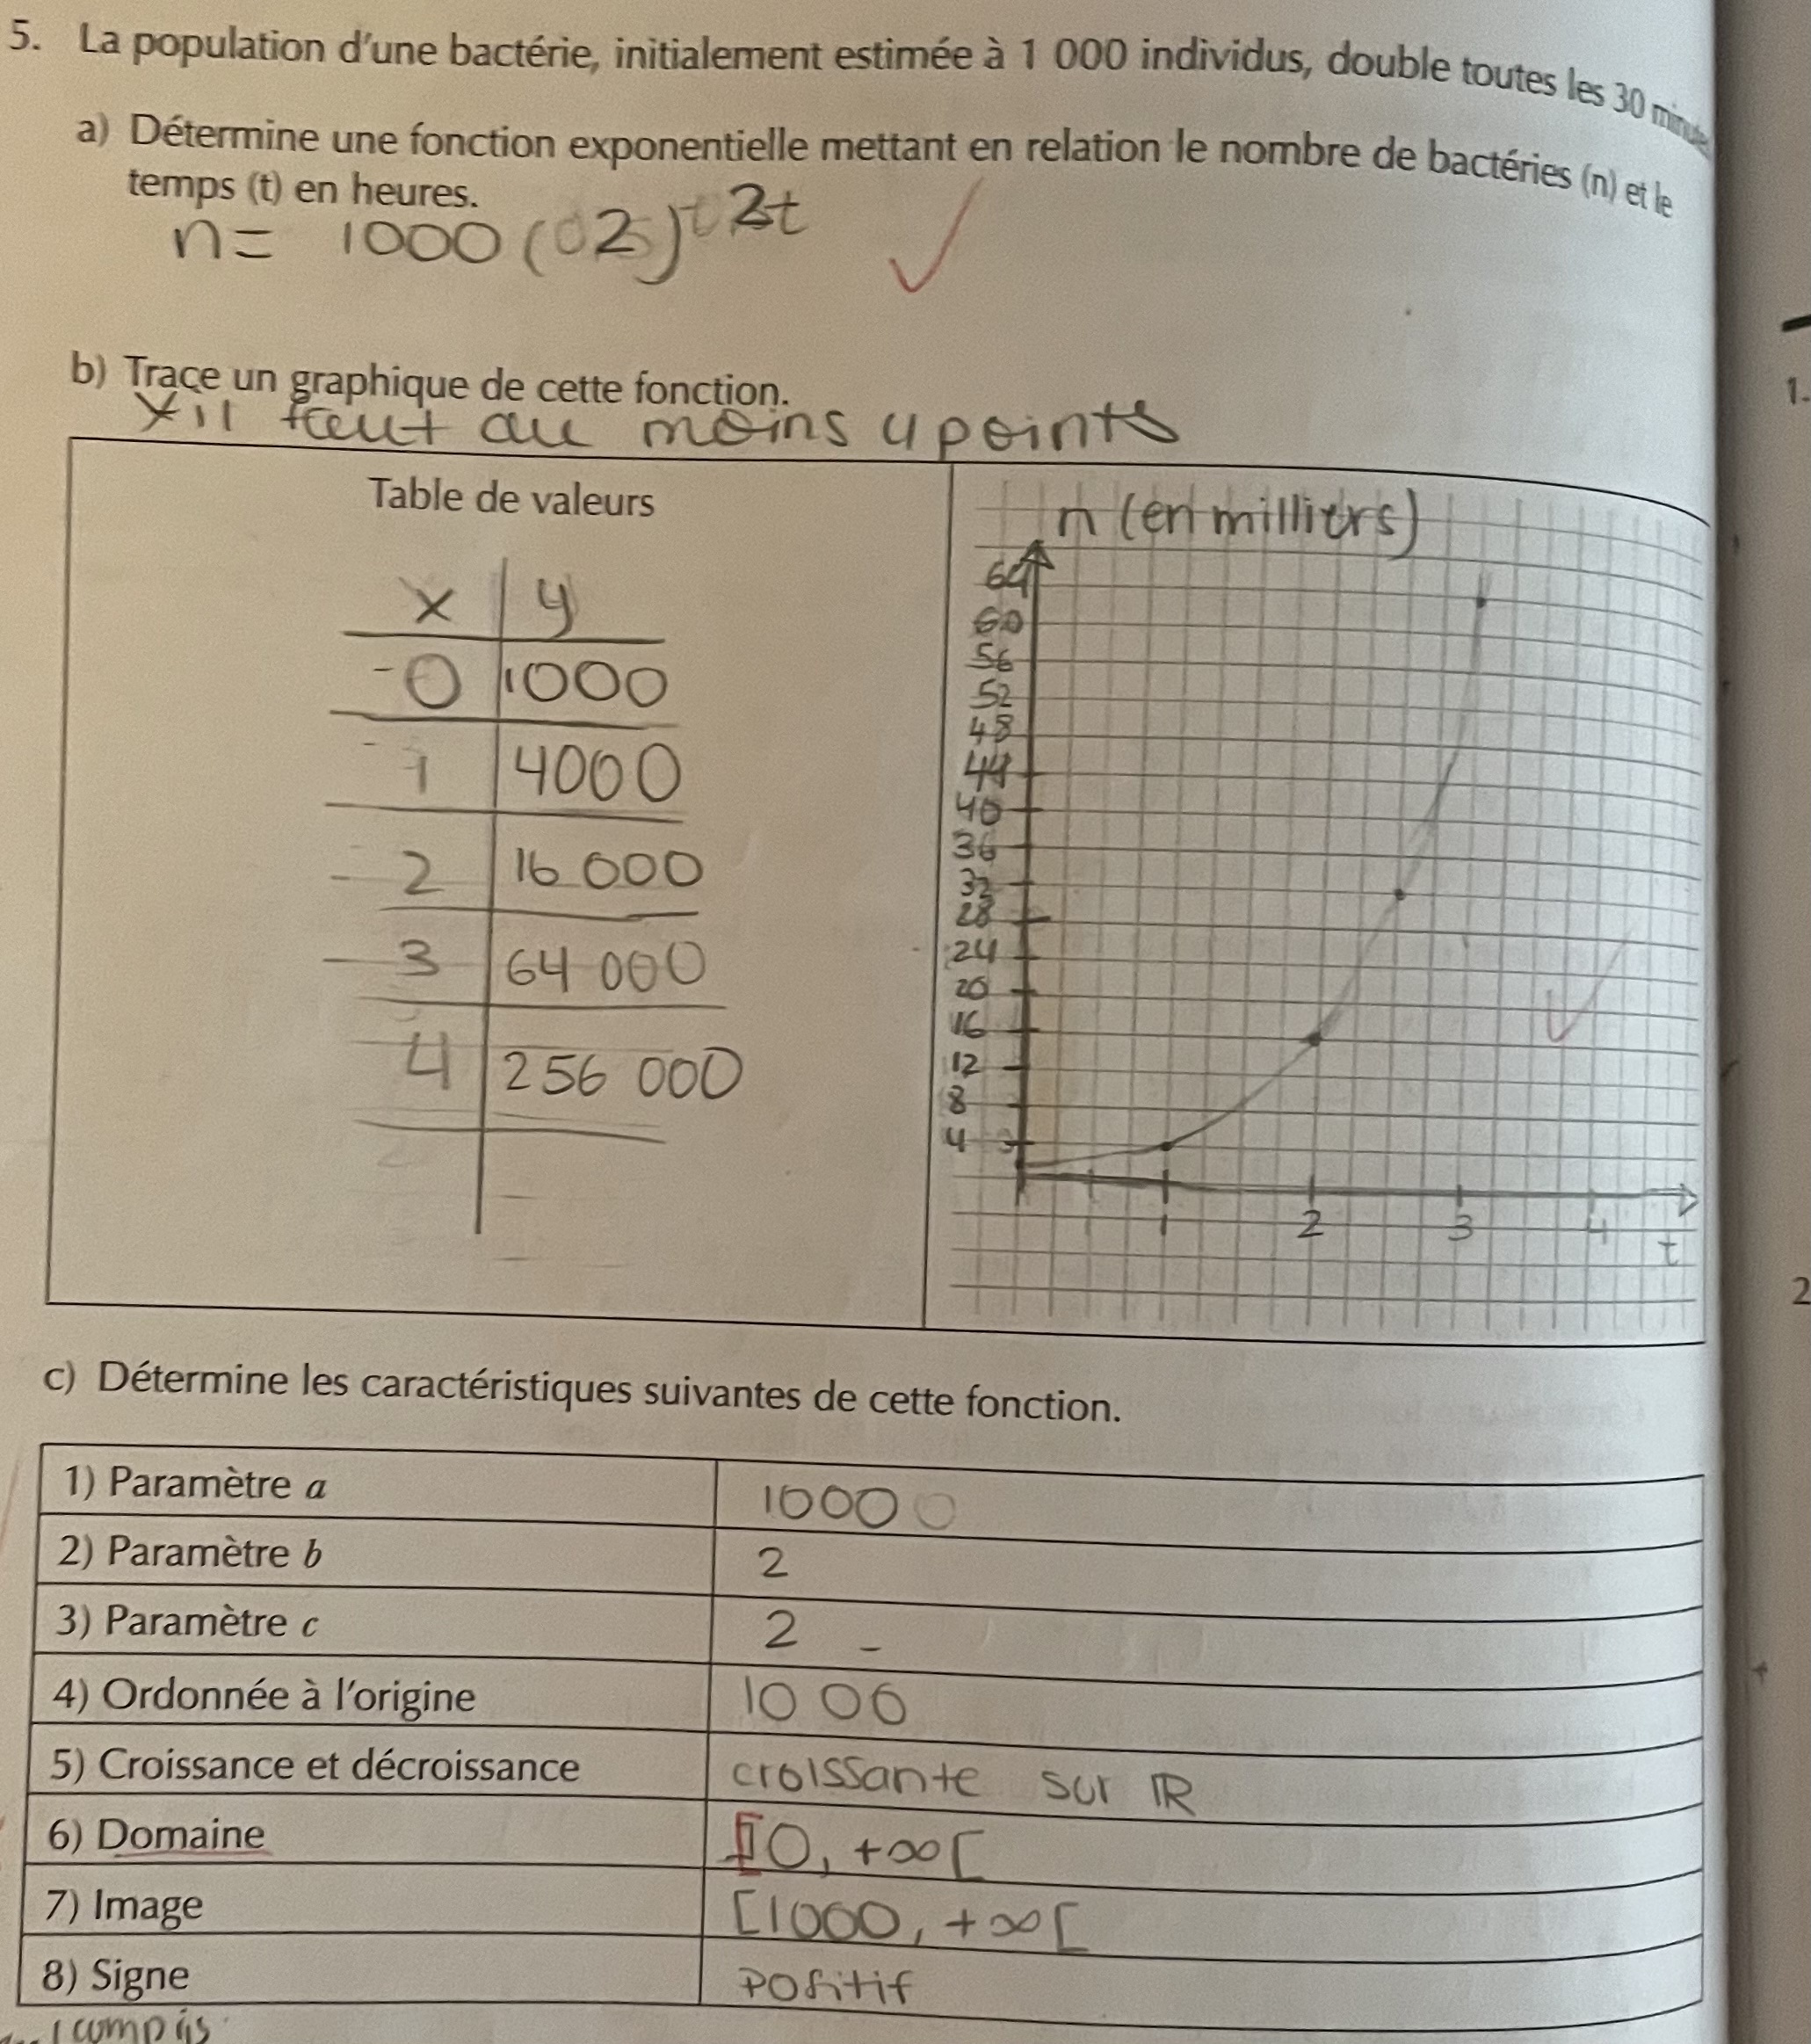 5. La population d'une bactérie, initialement estimée à 1 000 individus, double toutes les 30 minutes
a) Détermine une fonction exponentielle mettant en relation le nombre de bactéries (n) et le
temps (t) en heures.
n = 1000 (2)^2t
b) Trace un graphique de cette fonction.
*il faut au moins 4 points
Table de valeurs
x | y
0 | 1000
1 | 4000
2 | 16 000
3 | 64 000
4 | 256 000
n (en milliers)
64
60
56
52
48
44
40
36
32
28
24
20
16
12
8
4
1 2 3 4
t
c) Détermine les caractéristiques suivantes de cette fonction.
1) Paramètre a 1000
2) Paramètre b 2
3) Paramètre c 2
4) Ordonnée à l'origine 1000
5) Croissance et décroissance croissante sur ℝ
6) Domaine [0, +∞[
7) Image [1000, +∞[
8) Signe positif
1.
2